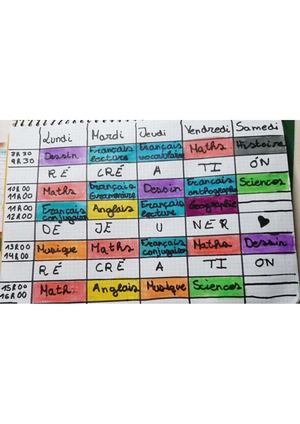 Lundi Mardi Jeudi Vendredi Samedi
8h30 9h30 Dessin Français lecture Français vocabulaire Maths Histoire
RÉ CRÉ A TI ON
10h00 11h00 Maths Français Grammaire Dessin Français orthographe Sciences
11h00 12h00 Français conjugaison Anglais Français lecture Géographie
DÉ JE U NER ♥
13h00 14h00 Musique Maths Français conjugaison Maths Dessin
RÉ CRÉ A TI ON
15h00 16h00 Math Anglais Musique Sciences